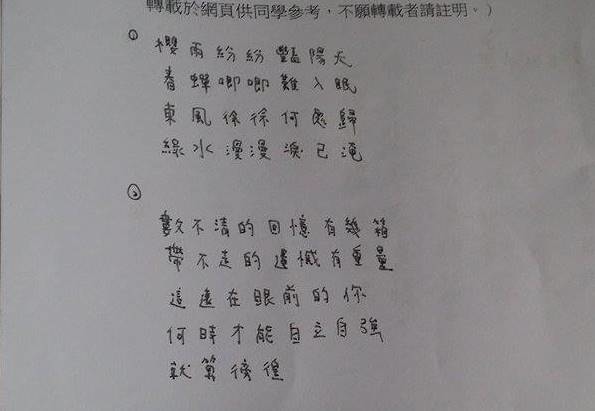 轉載於網頁供同學參考，不願轉載者請註明。）
①
櫻雨紛紛豔陽天
春蟬唧唧難入眠
東風徐徐何處歸
綠水漫漫淚已淹
②
數不清的回憶有幾箱
帶不走的遺憾有重量
這遠在眼前的你
何時才能自立自強
就算徬徨